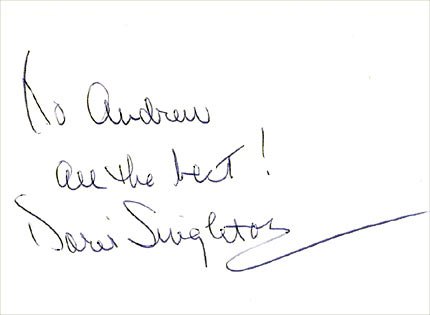 To Andrew
All the best!
Doris Singleton